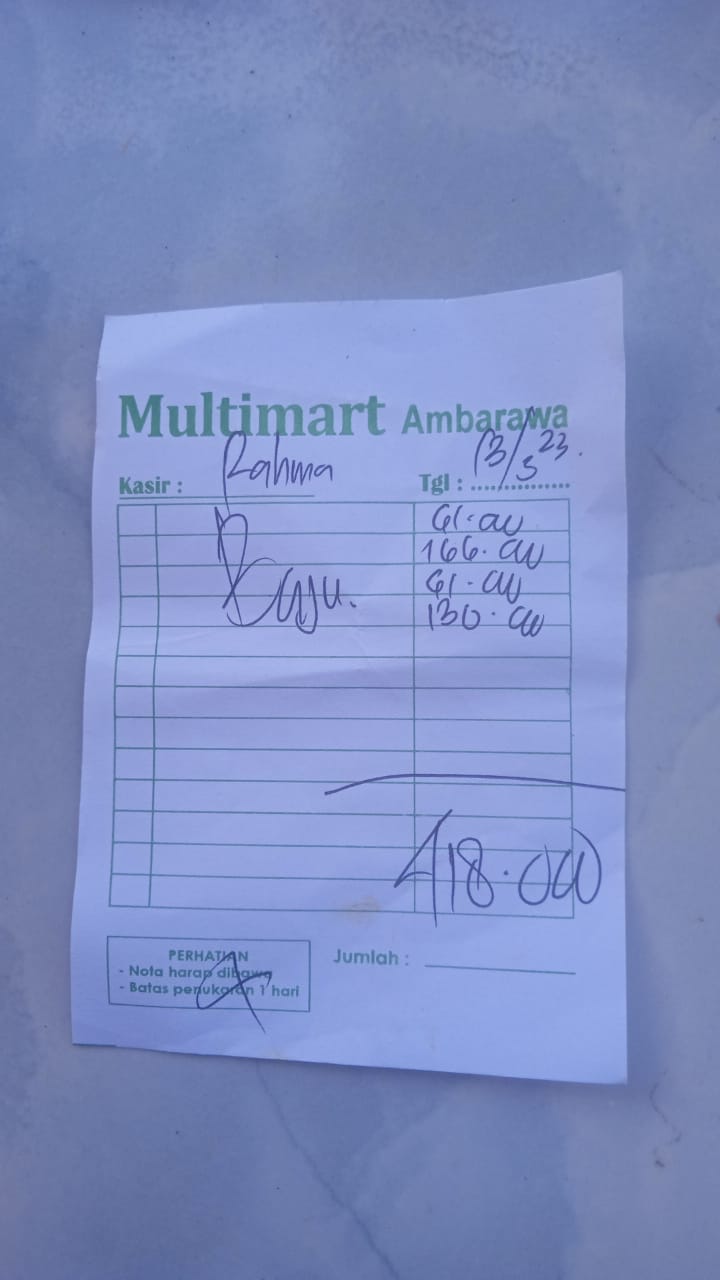 Multimart Ambarawa
Kasir : Rahma Tgl : 13/3 23.
61.000
166.000
Baju. 61.000
130.000
418.000
PERHATIAN
- Nota harap dibawa
- Batas penukaran 1 hari
Jumlah :